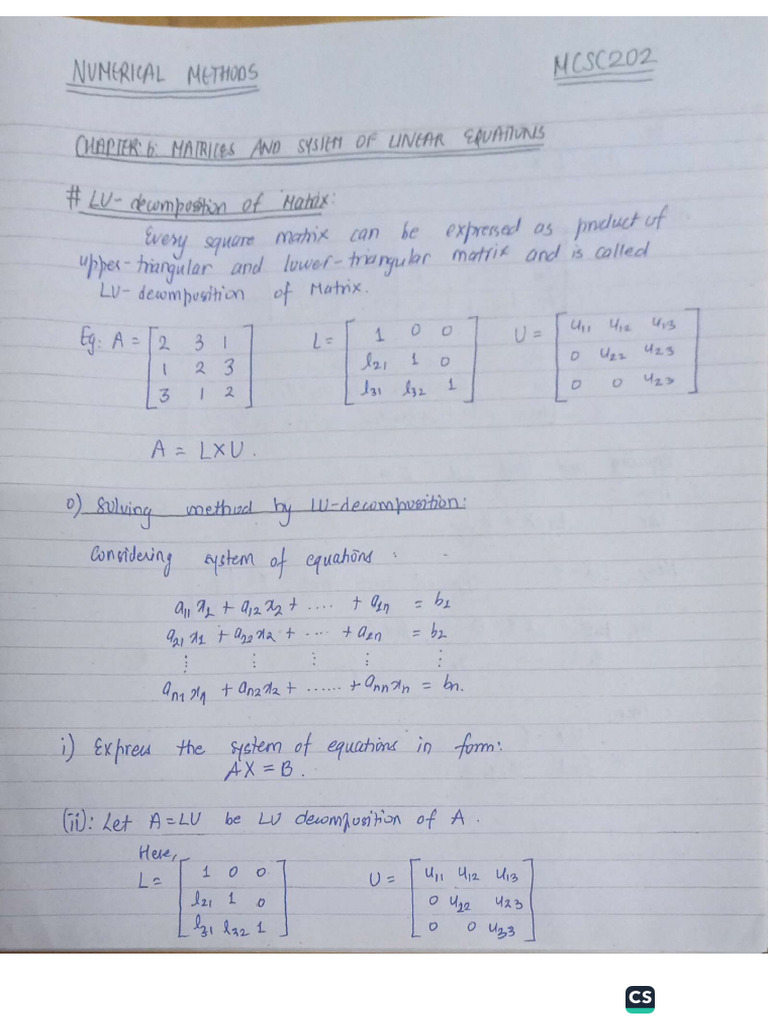 NUMERICAL METHODS MCSC202
CHAPTER: 6: MATRICES AND SYSTEM OF LINEAR EQUATIONS
# LU-decomposition of Matrix:
Every square matrix can be expressed as product of
upper-triangular and lower-triangular matrix and is called
LU-decomposition of Matrix.
Eg: A = [2 3 1 L = [1 0 0 U = [u11 u12 u13
1 2 3 l21 1 0 0 u22 u23
3 1 2] l31 l32 1] 0 0 u23]
A = L×U.
o) Solving method by LU-decomposition:
Considering system of equations:
a11 x1 + a12 x2 + .... + a1n = b1
a21 x1 + a22 x2 + .... + a2n = b2
⋮ ⋮ ⋮ ⋮ ⋮
an1 x1 + an2 x2 + ...... + ann xn = bn.
i) Express the system of equations in form:
AX = B.
(ii): Let A = LU be LU decomposition of A.
Here,
L = [1 0 0 U = [u11 u12 u13
l21 1 0 0 u22 u23
l31 l32 1] 0 0 u33]
CS